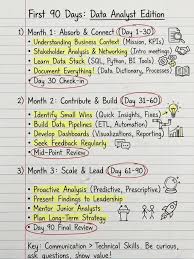 First 90 Days: Data Analyst Edition
1) Month 1: Absorb & Connect (Day 1-30)
• Understanding Business Context (Mission, KPIs)
• Stakeholder Analysis & Networking (Intro meetings)
• Learn Data Stack (SQL, Python, BI Tools)
• Document Everything! (Data Dictionary, Processes)
• Day 30 Check-in
2) Month 2: Contribute & Build (Day 31-60)
• Identify Small Wins (Quick Insights, Fixes)
• Build Data Pipelines (ETL, Automation)
• Develop Dashboards (Visualizations, Reporting)
• Seek Feedback Regularly
• Mid-Point Review
3) Month 3: Scale & Lead (Day 61-90)
• Proactive Analysis (Predictive, Prescriptive)
• Present Findings to Leadership
• Mentor Junior Analysts
• Plan Long-Term Strategy
• Day 90 Final Review
Key: Communication > Technical Skills. Be curious,
ask questions, show value!